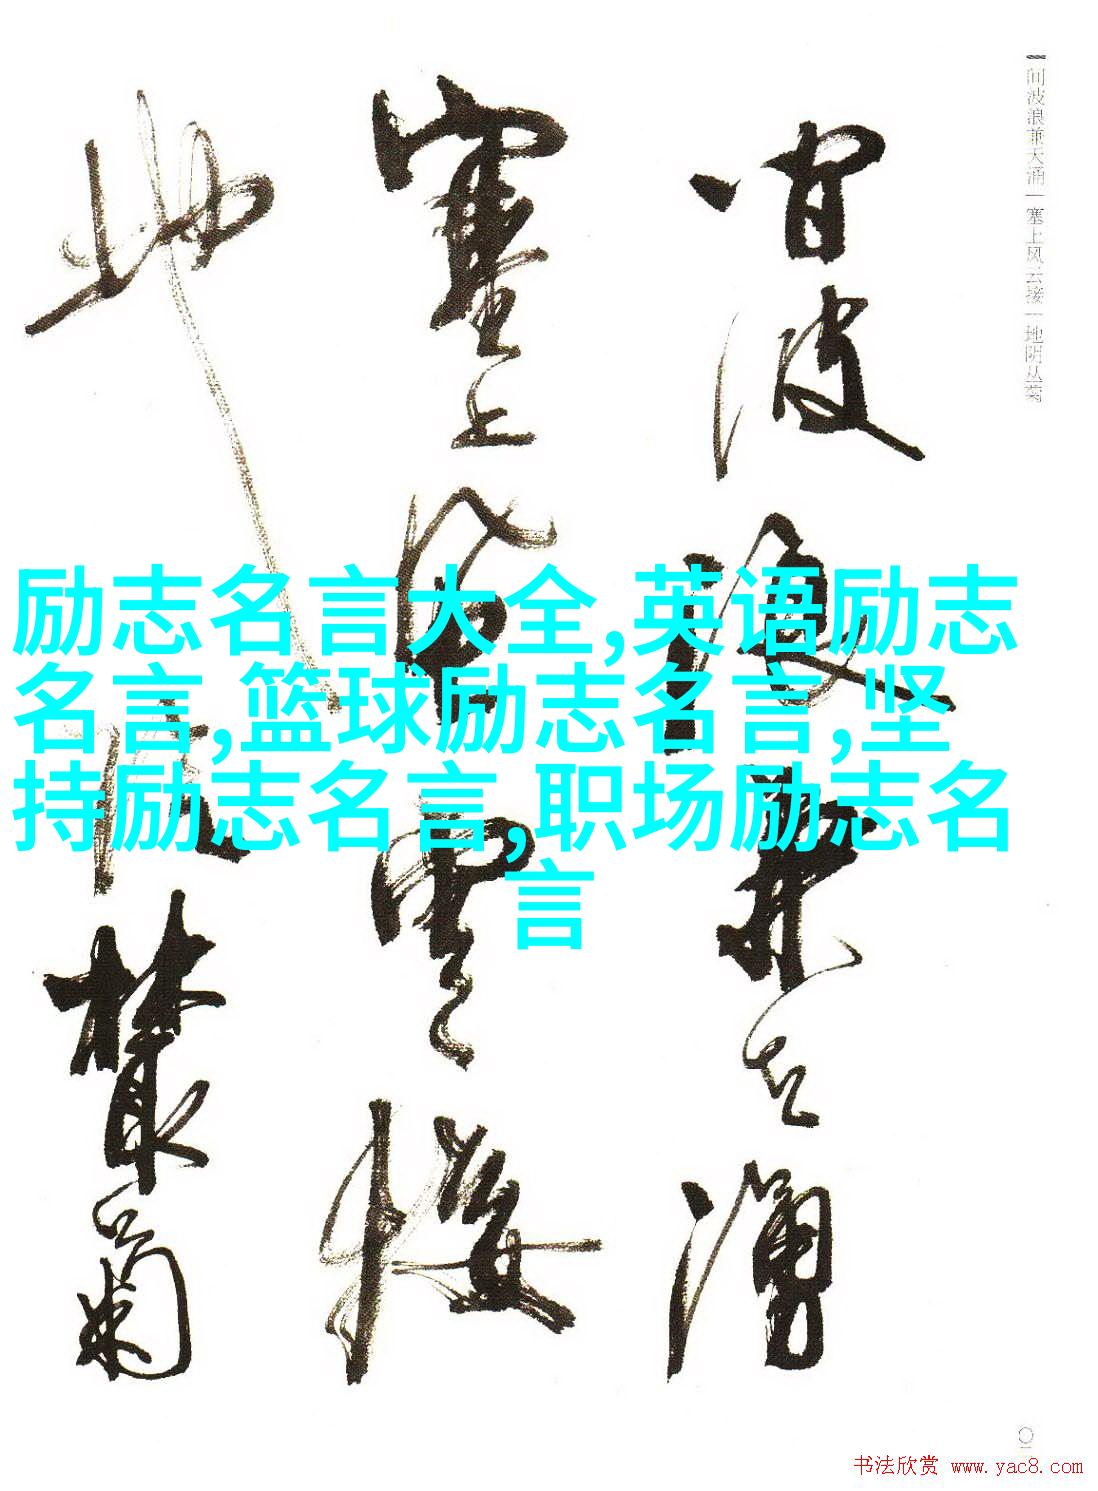 间波浪兼天涌 塞上风云接 地阴丛菊
间波浪兼天涌
塞上风云接
地阴丛菊
励志名言大全,英语励志
名言,篮球励志名言,坚
持励志名言,职场励志名
言
书法欣赏 www.yac8.com